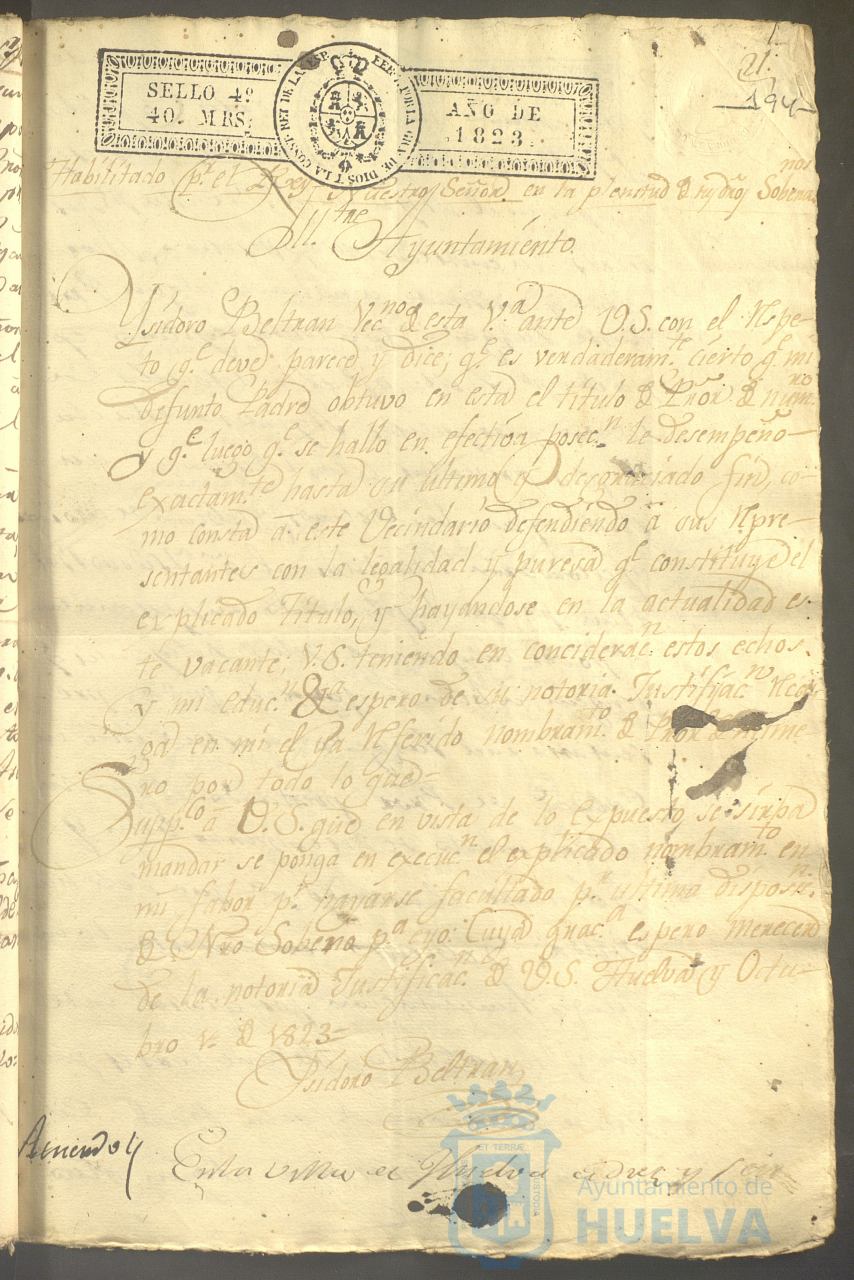 21.
194
SELLO 4º
40. MRS.
AÑO DE
1823.
POR LA G. DE DIOS Y LA CONST. REY DE LAS ESP.
Habilitado pr. el Rey Nuestro Señor en la plenitud de sus dros Soberanos
Illtre Ayuntamiento
Ysidoro Beltran Vecno de esta Va. ante V.S. con el respe-
to qe. deve parece y dice; qe. es verdaderamte. cierto qe. mi
defunto Padre obtuvo en esta el titulo de Pror. de numro
y qe. luego qe. se hallo en efectiva posecn. le desempeño
exactamte hasta su ultimo y desgraciado fin, co-
mo consta á este Vecindario defendiendo á sus repre-
sentantes con la legalidad y puresa qe. constituye el
explicado Titulo, y hayandose en la actualidad es-
te vacante; V.S. teniendo en concideracn. estos echos
y mi educn. &a espero de su notoria Justificacn. recai-
ga en mi el ya referido nombramto. de Pror. de nume-
ro por todo lo que-
Suppco á V.S. que en vista de lo expuesto se sirva
mandar se ponga en execucn. el explicado nombramto. en
mi fabor pr. hayarse facultado pr. ultima disposn.
de Nro Sobeno pa. eyo: Cuya graca. espero merecer
de la notoria Justificacn. de V.S. Huelva y Octu-
bre 1º de 1823-
Ysidoro Beltran
Acuerdo
En la villa de Huelva a diez y seis
ET TERRÆ
CUSTODIA
Ayuntamiento de
HUELVA